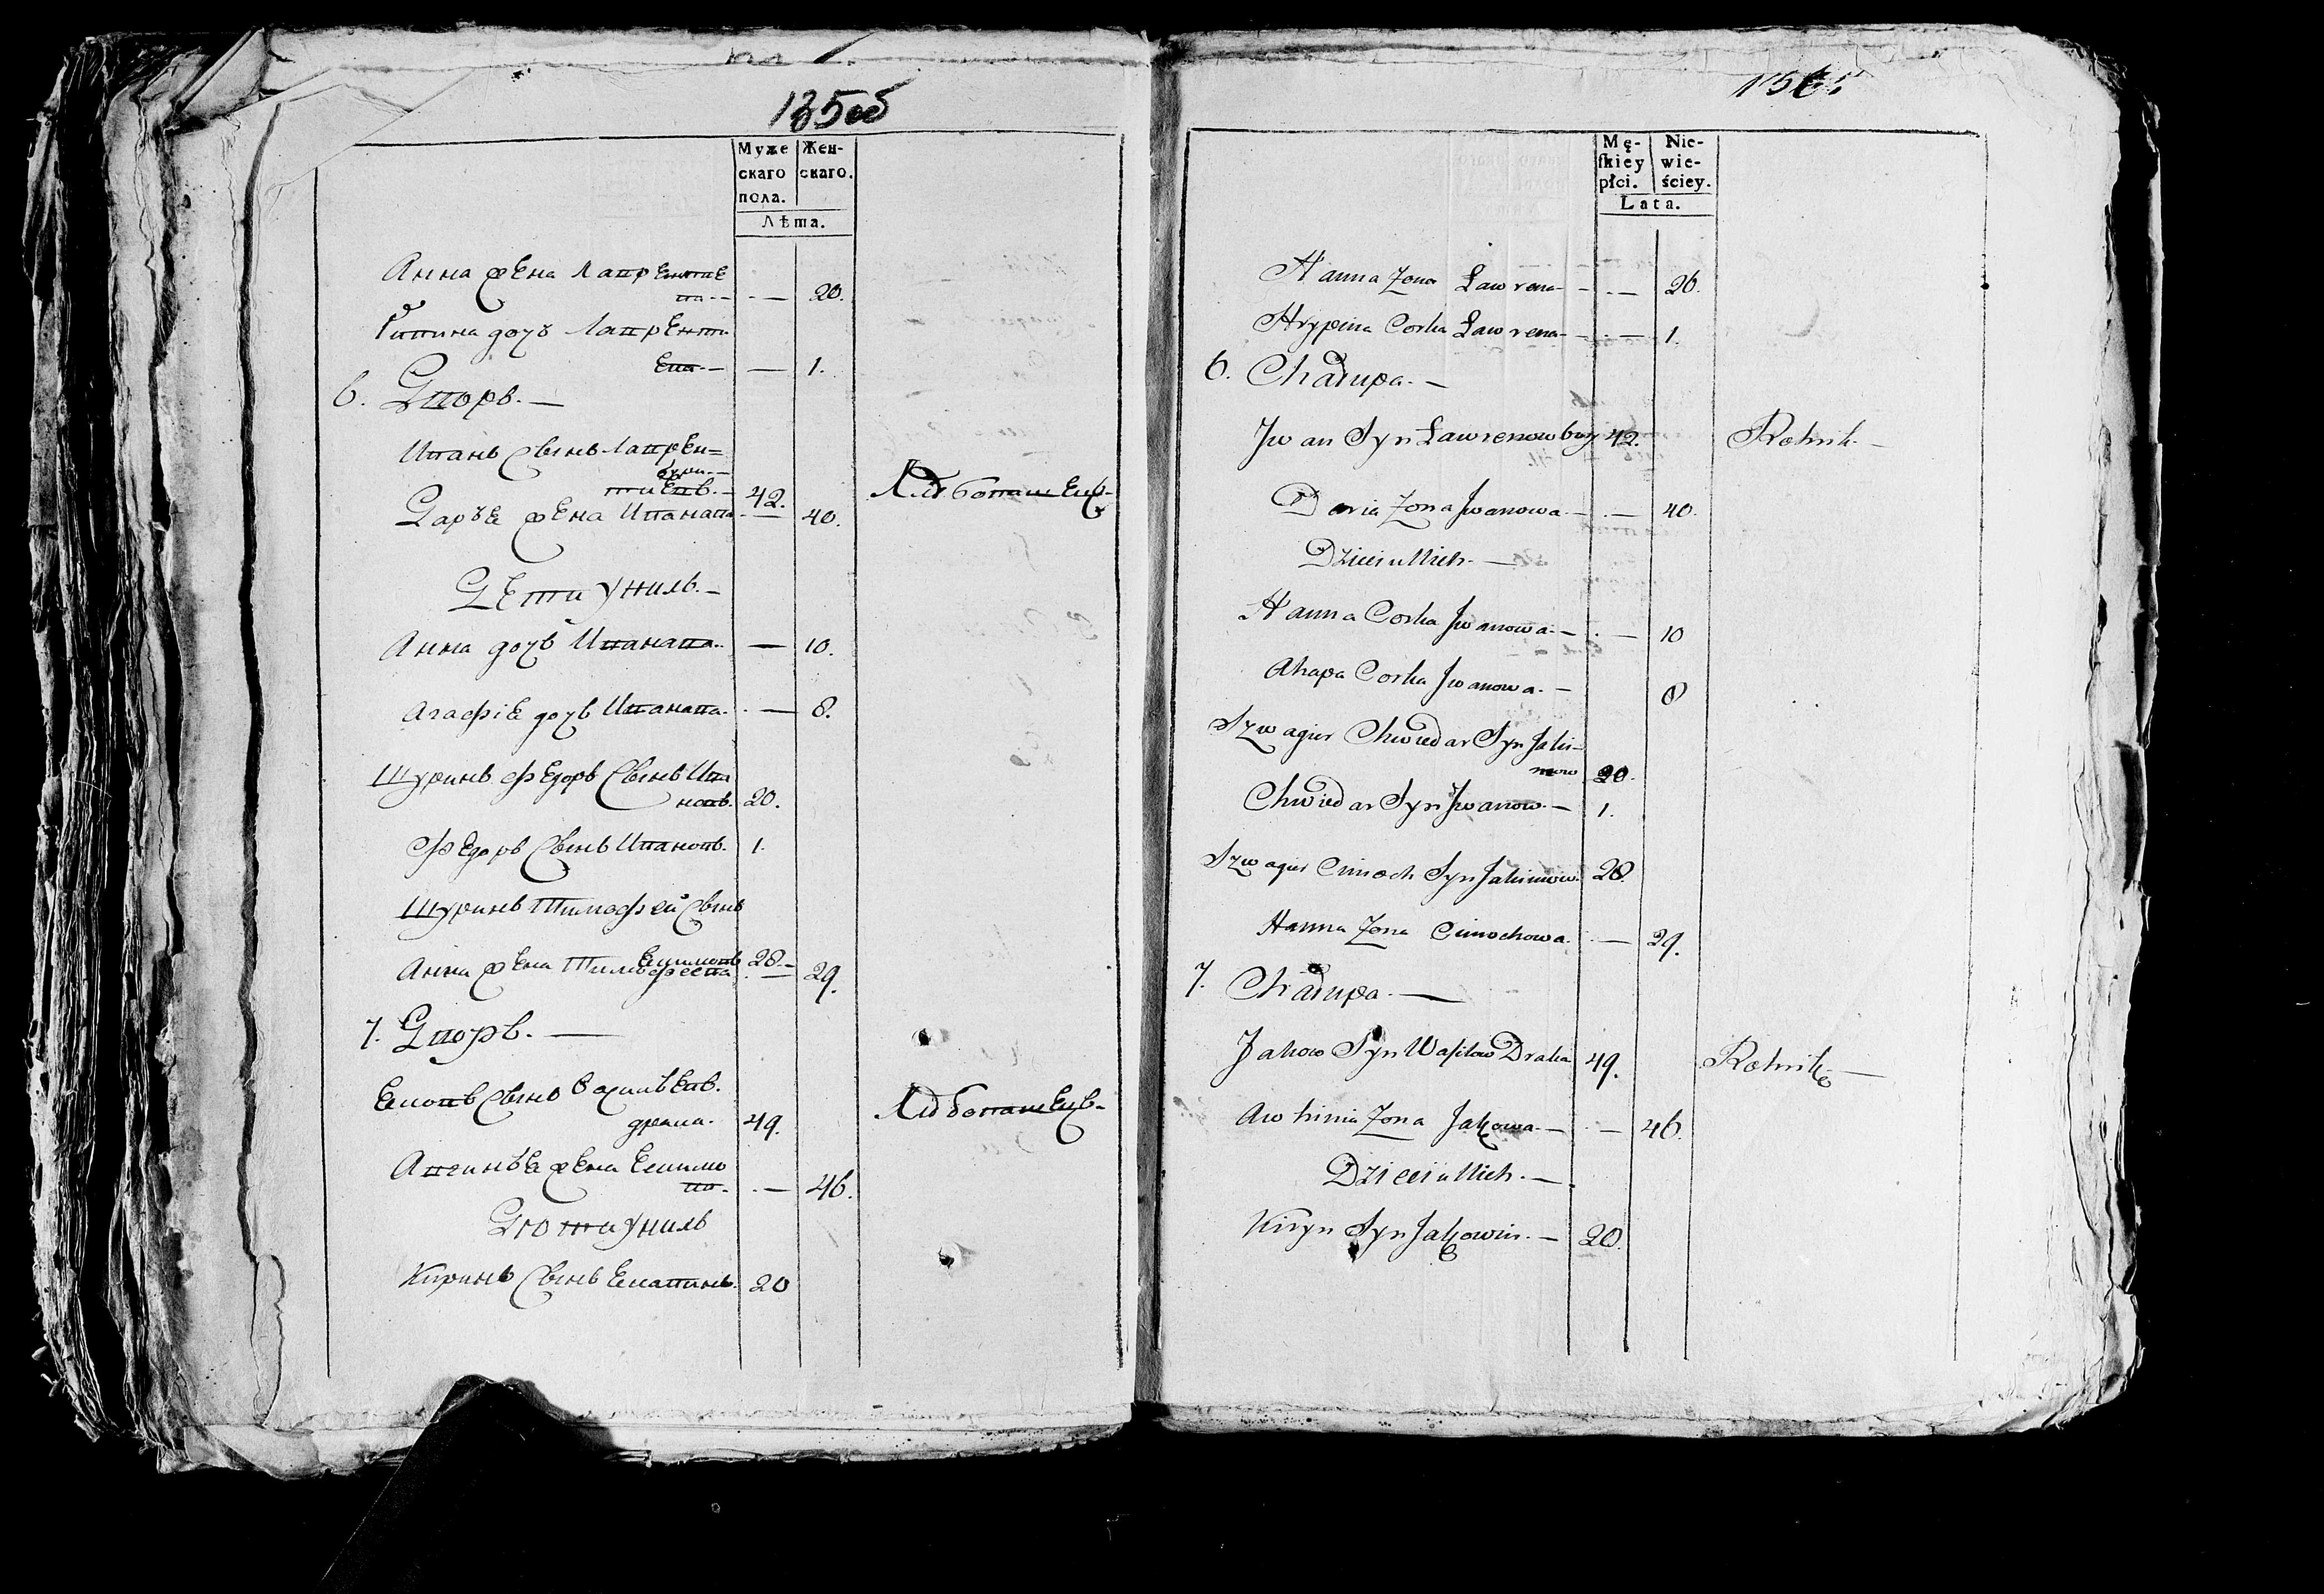 135об
Муже
скаго
пола.
Жен-
скаго.
Лѣта.
Анна жена Лаврентие
ва - - . — 20.
дочъ Лавренти
ева - — 1.
6. Дворъ. —
Иванъ Сынъ Лаврен=
тиевъ. - 42. Хлѣбопашецъ
Дарья жена Иванова — 40.
Дети У нихъ. -
Анна дочъ Иванова. — 10.
Агафія дочъ Иванова. . — 8.
Шуринъ Федоръ Сынъ
новъ. 20.
Федоръ Сынъ Ивановъ. 1.
Шуринъ Тимофей Сынъ
Екимовъ 28. -
Анна жена Тимофеева . — 29.
7. Дворъ. —
Сынъ Василъевъ.
49. Хлѣбопашецъ
жена
ва. . — 46.
У нихъ
Сынъ 20
Mę-
ſkiey
płci.
Nie-
wie-
ściey.
Lata.
Hanna Zona Lawrena - - . — 20.
Hrypina Corka Lawrena - . — 1.
6. Chałupa. —
Jwan Syn Lawrenow 42. Rolnik. —
Daria Zona Jwanowa. - . — 40.
Dzieci u Nich. —
Hanna Corka Jwanowa. - . — 10
Ahapa Corka Jwanowa. - 8
Szwagier Chwiedar Syn Jaki-
mow 20.
Chwiedar Syn Jwanow. - 1.
Szwagier Cimoch Syn Jakimow. 28.
Hanna Zona Cimochowa. . — 29.
7. Chałupa. —
Jakow Syn Waſilow Draka 49. Rolnik. —
Awhinia Zona Jakowa. — . — 46.
Dzieci u Nich. —
Kiryn Syn Jakowin. — 20.